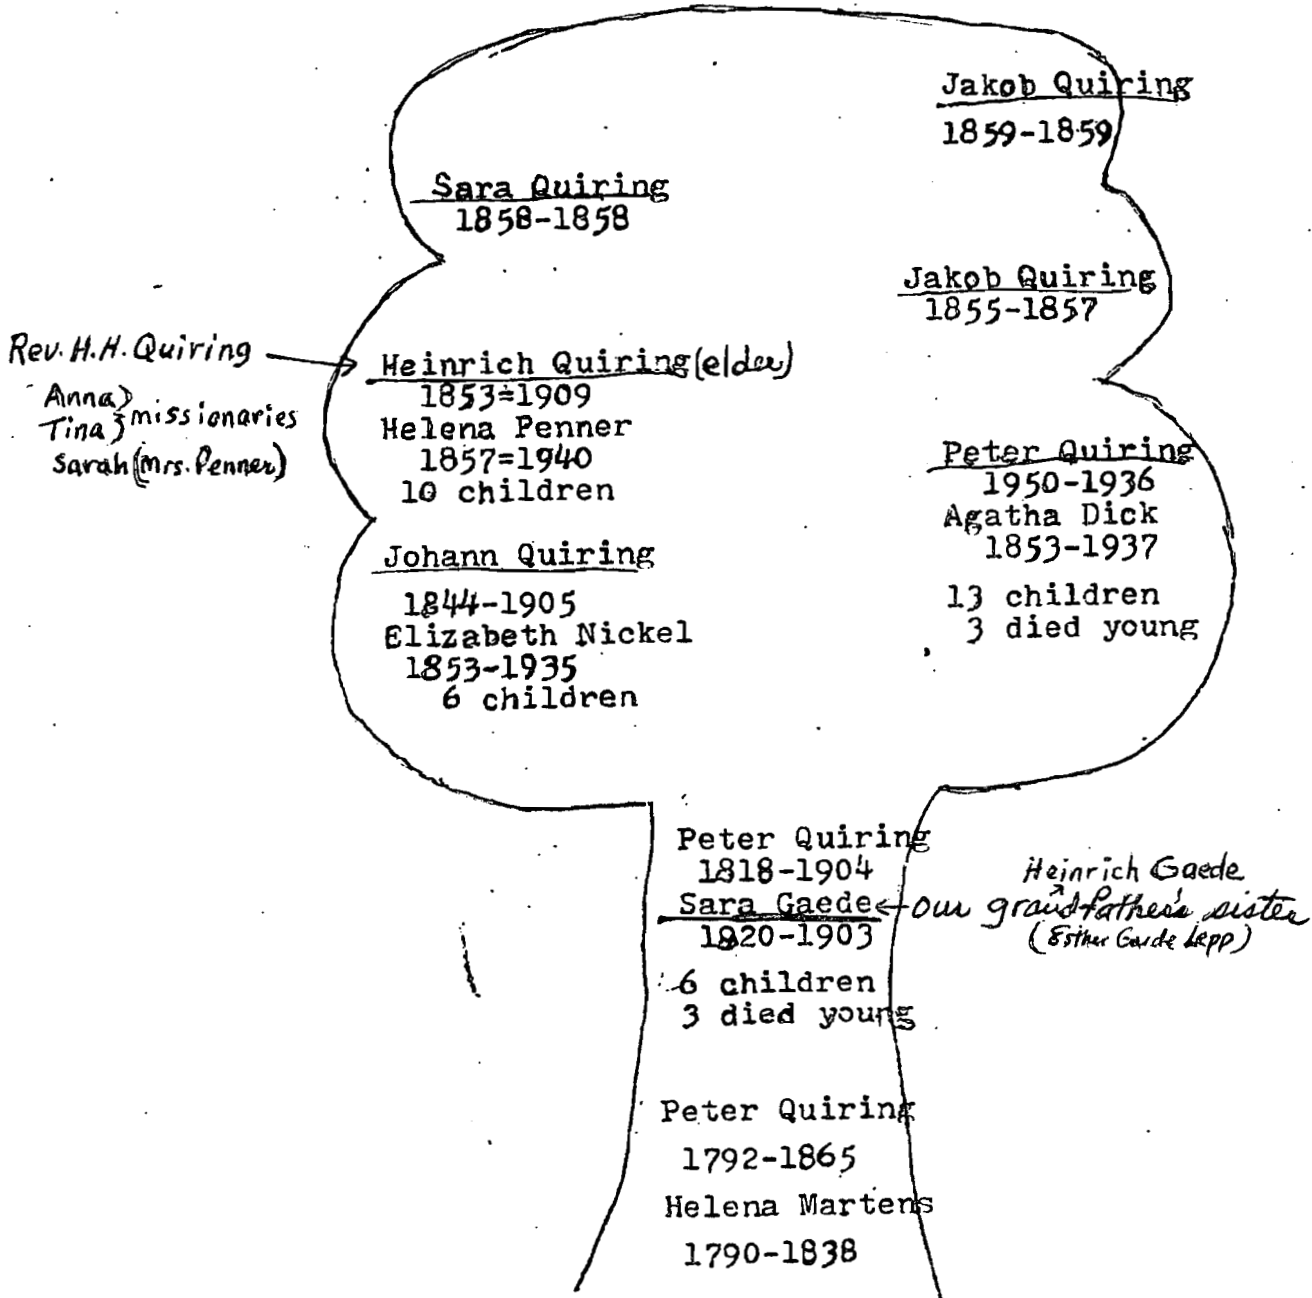 Jakob Quiring
1859-1859
Sara Quiring
1858-1858
Jakob Quiring
1855-1857
Rev. H.H. Quiring
Anna
Tina } missionaries
Sarah (Mrs. Penner)
Heinrich Quiring (elder)
1853=1909
Helena Penner
1857=1940
10 children
Peter Quiring
1950-1936
Agatha Dick
1853-1937
13 children
3 died young
Johann Quiring
1844-1905
Elizabeth Nickel
1853-1935
6 children
Peter Quiring
1818-1904
Sara Gaede
1820-1903
6 children
3 died young
Heinrich Gaede
our grandfather's sister
(Esther Gaede Lepp)
Peter Quiring
1792-1865
Helena Martens
1790-1838